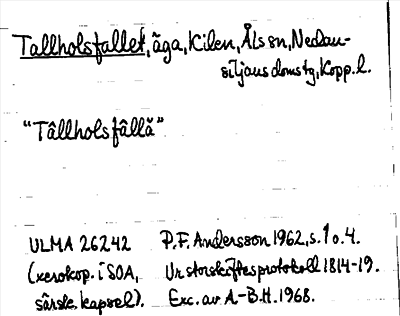 Tallholsfallet, äga, Kilen, Ål sn, Nedan-
siljans domstg, Kopp. l.
"Tâllholsfâllä"
ULMA 26242 P.F. Andersson 1962, s. 1 o. 4.
(xerokop. i SOA, Ur storskiftesprotokoll 1814-19.
särsk. kapsel). Exc. av A.-B.H. 1968.